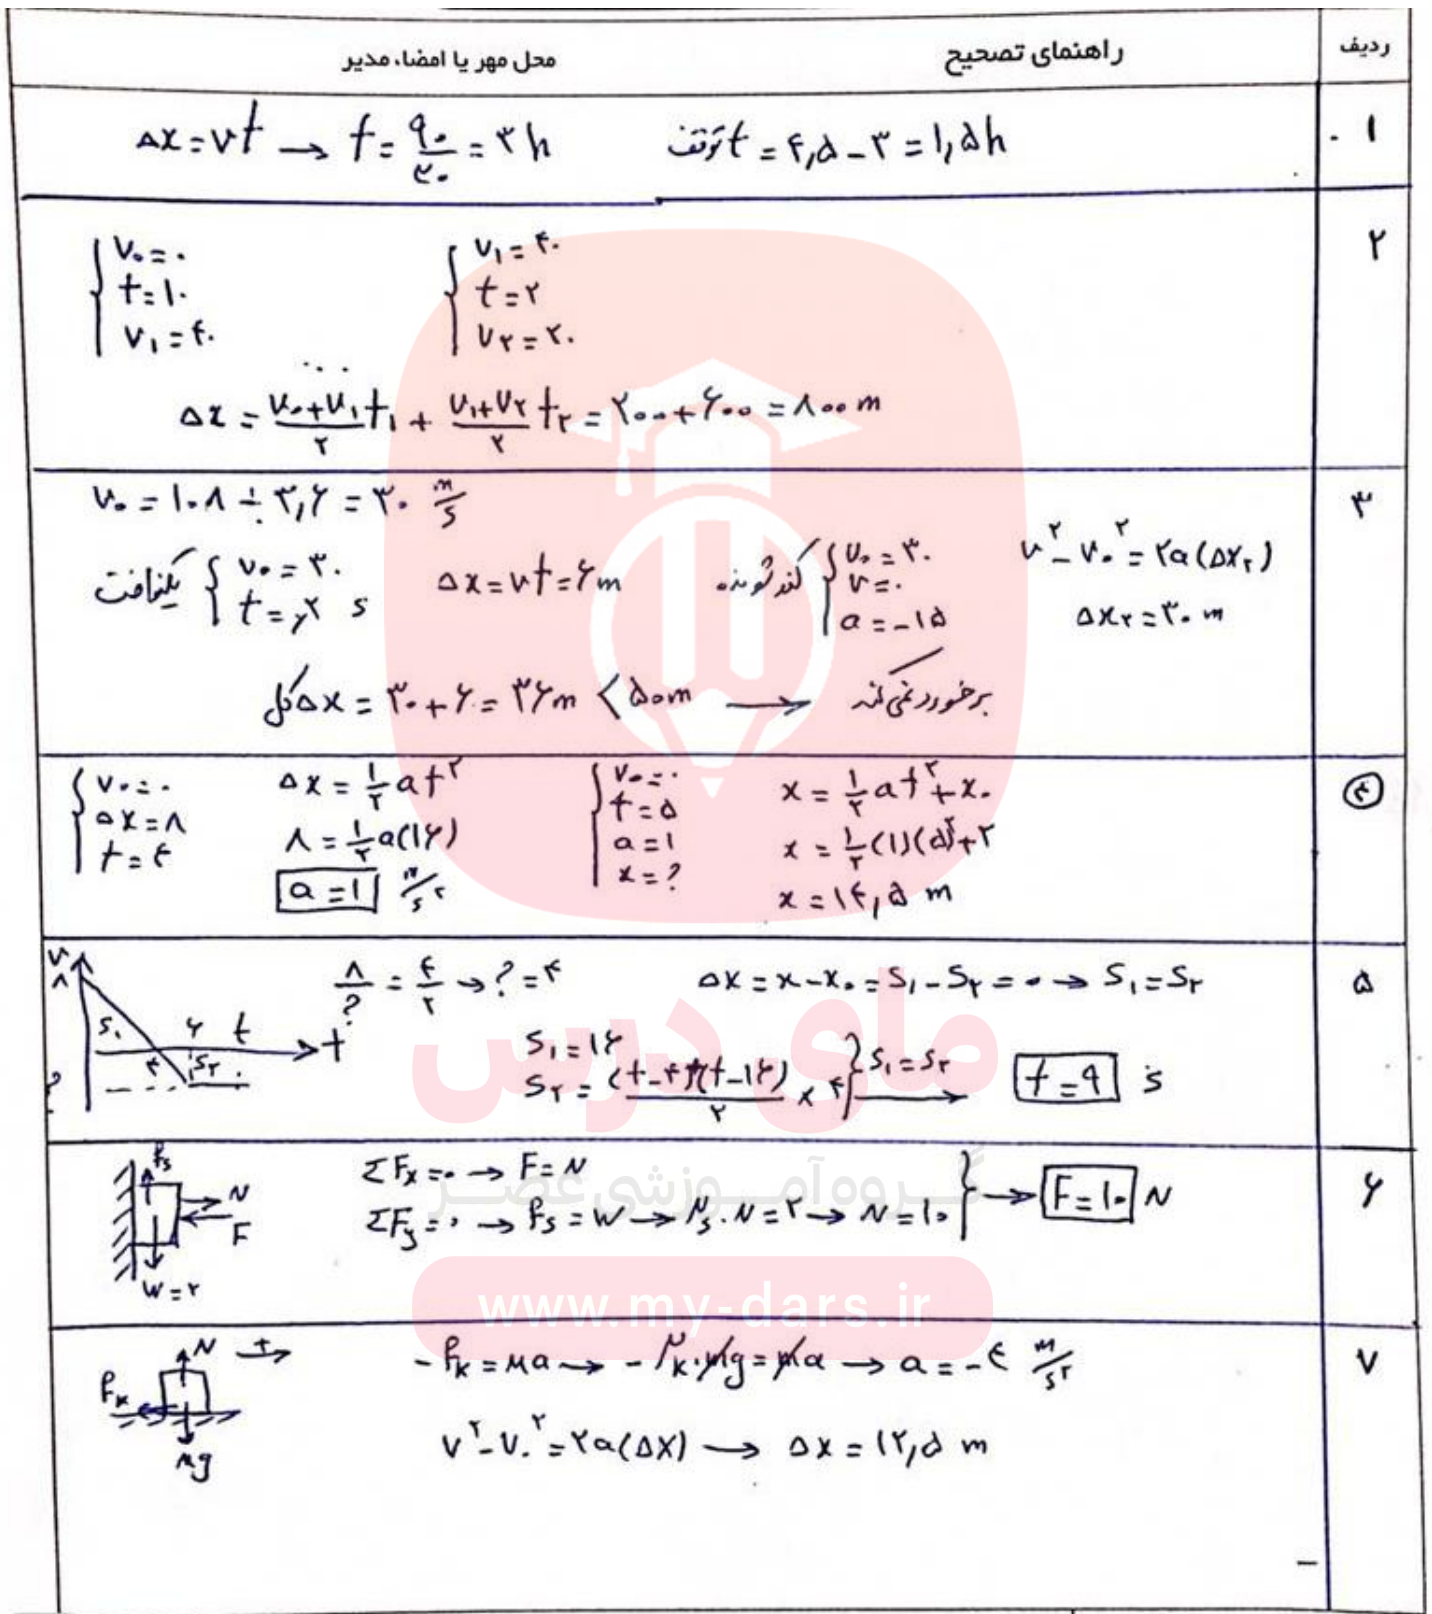 ردیف راهنمای تصحیح محل مهر یا امضاء مدیر
۱
Δx = vt → t = ۹۰/۳۰ = ۳ h توقف t = ۴,۵ - ۳ = ۱,۵ h
۲
v₀ = ۰ v₁ = ۴۰
t = ۱۰ t = ۲
v₁ = ۴۰ v₂ = ۲۰
Δx = (v₀+v₁)/۲ t₁ + (v₁+v₂)/۲ t₂ = ۲۰۰ + ۶۰۰ = ۸۰۰ m
۳
v₀ = ۱۰۸ ÷ ۳,۶ = ۳۰ m/s
یکنواخت v₀ = ۳۰ t = ,۲ s Δx = vt = ۶ m کندشونده v₀ = ۳۰ v = ۰ a = -۱۵ v² - v₀² = ۲a(Δx₂)
Δx₂ = ۳۰ m
کل Δx = ۳۰ + ۶ = ۳۶ m < ۵۰ m → برخورد نمی‌کند
۴
v₀ = ۰ Δx = ½at² v₀ = ۰ x = ½at² + x₀
Δx = ۸ ۸ = ½a(۱۶) t = ۵ x = ½(۱)(۵)² + ۲
t = ۴ a = ۱ m/s² a = ۱ x = ۱۴,۵ m
x = ?
۵
v
۸ ۸/? = ۴/۲ → ? = ۴ Δx = x - x₀ = S₁ - S₂ = ۰ → S₁ = S₂
S₁ ۶ t
t
۴ S₂
?
S₁ = ۱۶
S₂ = (t-۴)+(t-۱۶)/۲ × ۴ S₁ = S₂ → t = ۹ s
۶
fs N F W = ۲
ΣFx = ۰ → F = N
ΣFy = ۰ → fs = W → μs.N = ۲ → N = ۱۰ → F = ۱۰ N
۷
N + fk Mg
-fk = Ma → -μk.Mg = Ma → a = -۴ m/s²
v² - v₀² = ۲a(Δx) → Δx = ۱۲,۵ m
مای درس
گروه آموزشی عصر
www.my-dars.ir